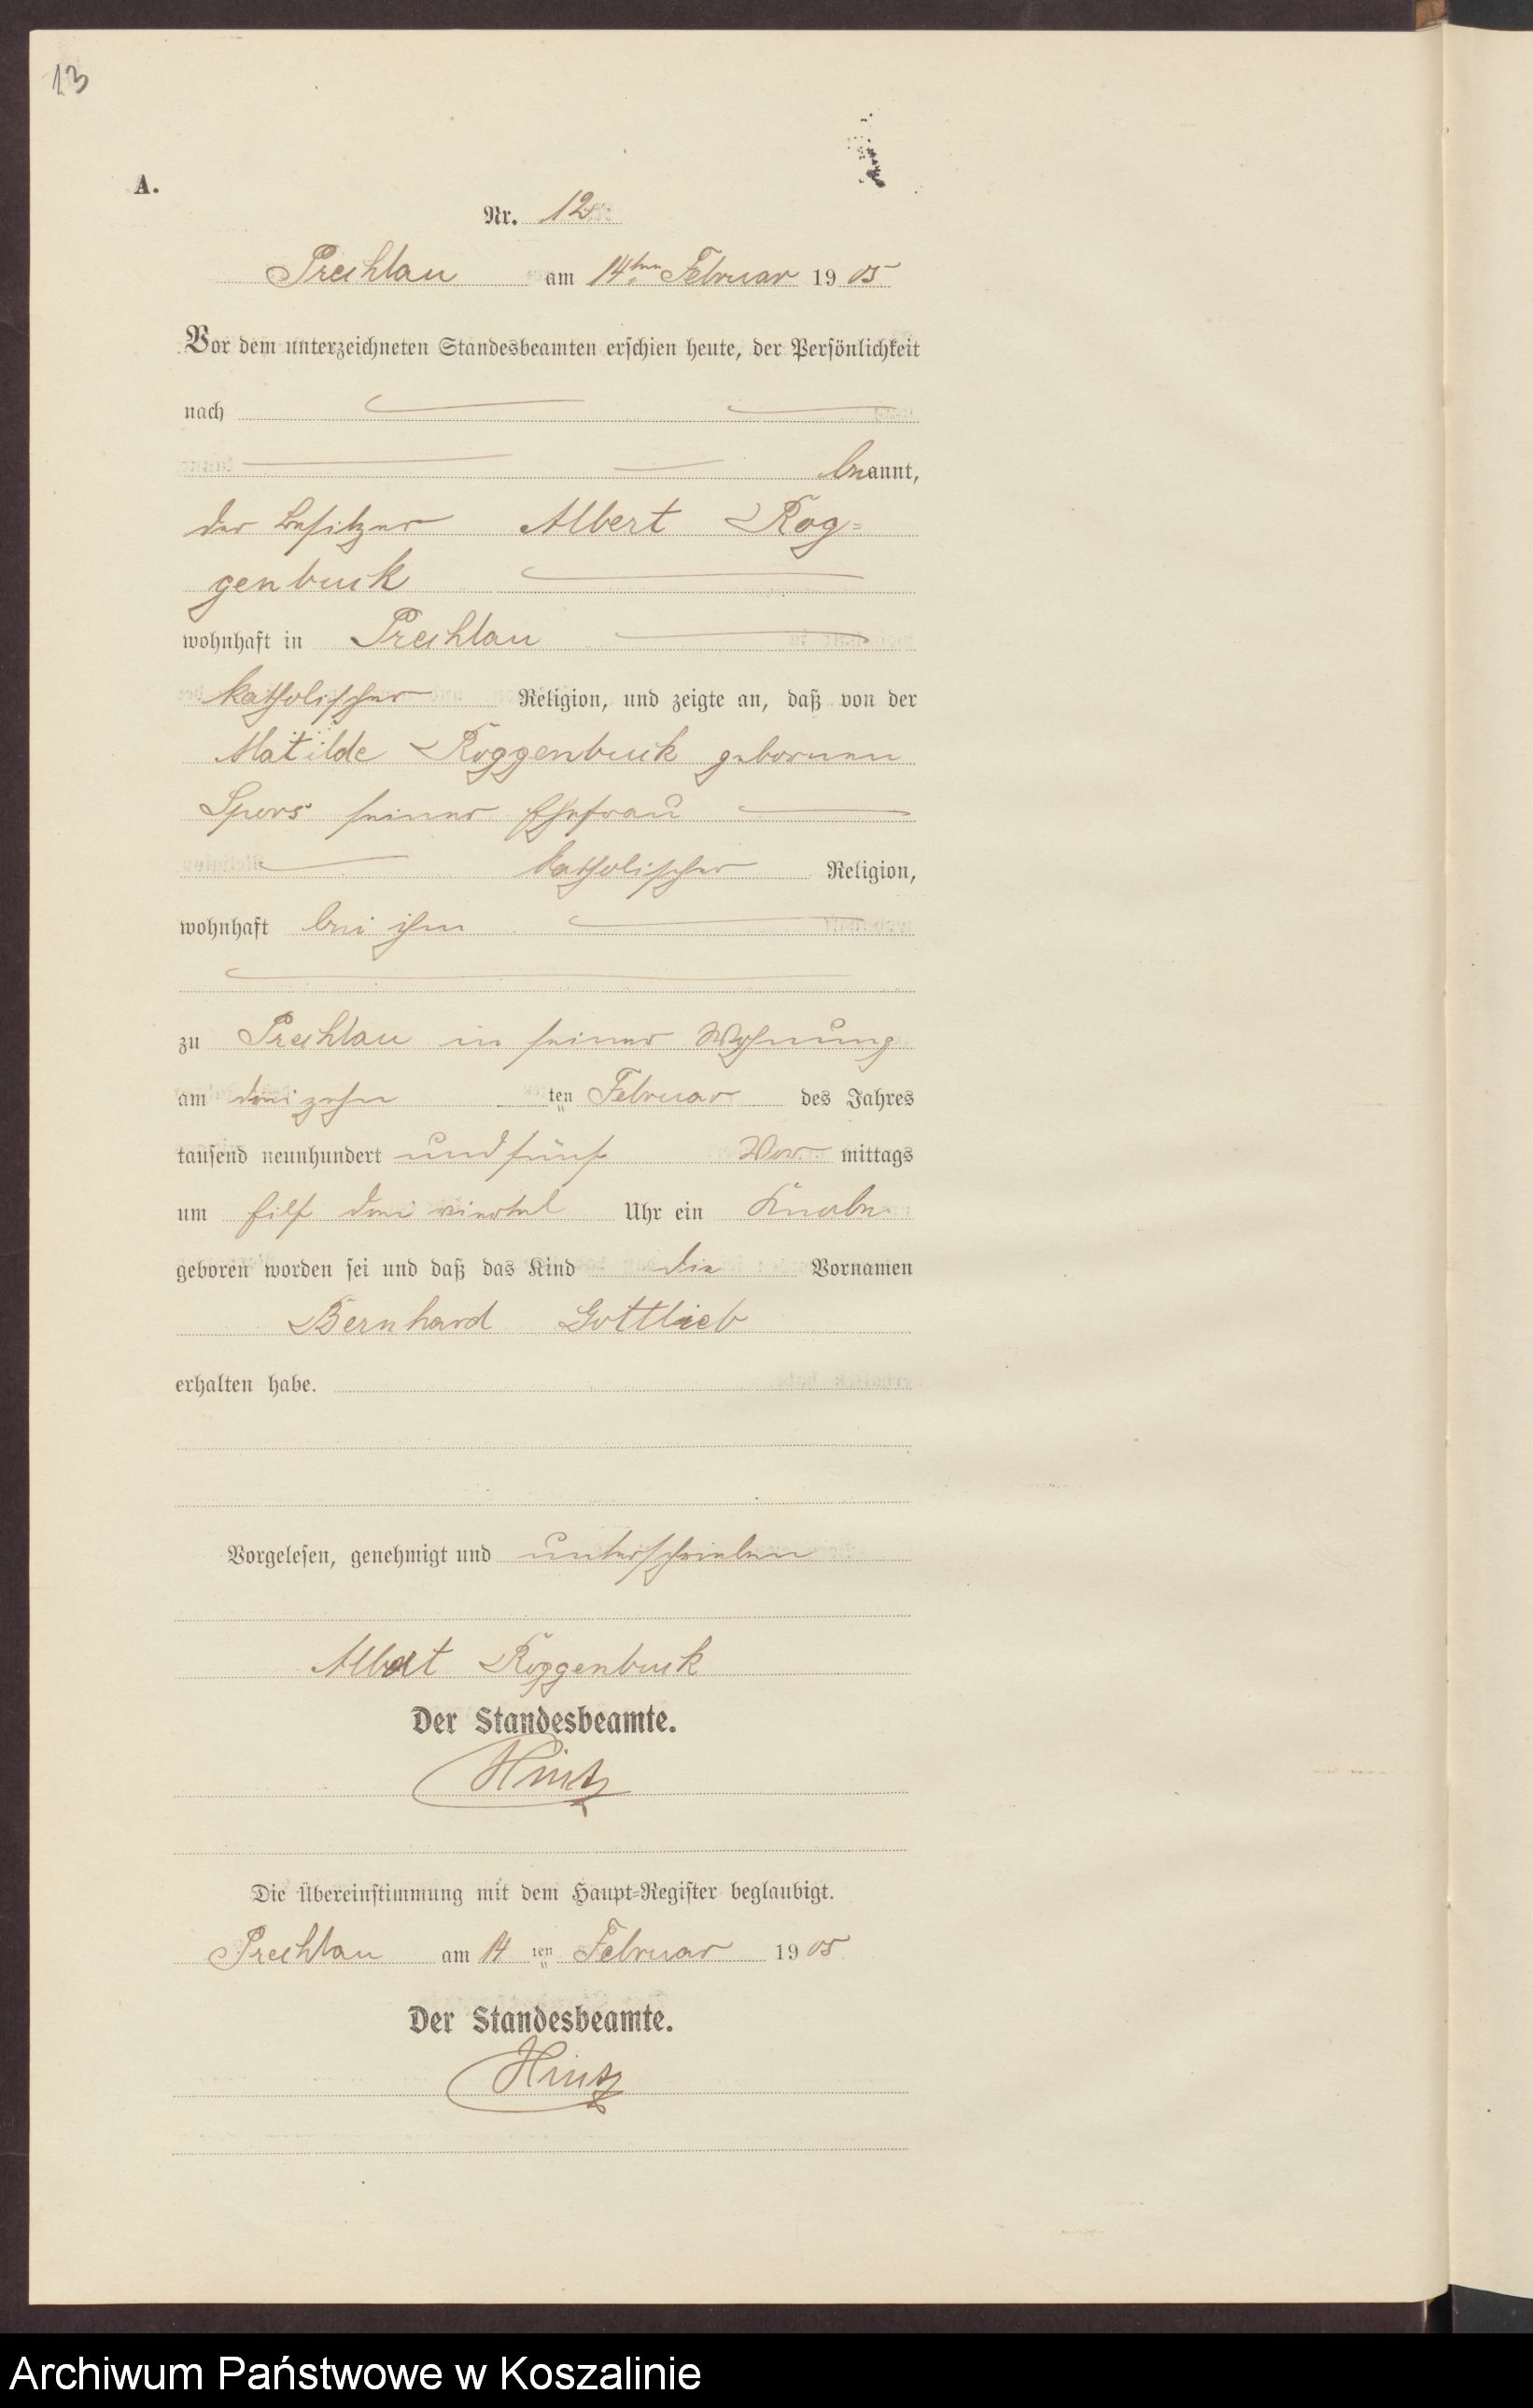 13
A.
Nr. 12
Prechlau am 14ten Februar 1905
Vor dem unterzeichneten Standesbeamten erschien heute, der Persönlichkeit
nach
bekannt,
der Besitzer Albert Rog=
genbuck
wohnhaft in Prechlau
katholischer Religion, und zeigte an, daß von der
Matilde Roggenbuck geborenen
Spors seiner Ehefrau
katholischer Religion,
wohnhaft bei ihm
zu Prechlau in seiner Wohnung
am dreizehn ten Februar des Jahres
tausend neunhundert und fünf Vor mittags
um elf drei viertel Uhr ein Knabe
geboren worden sei und daß das Kind die Vornamen
Bernhard Gottlieb
erhalten habe.
Vorgelesen, genehmigt und unterschrieben
Albert Roggenbuck
Der Standesbeamte.
Hintz
Die Übereinstimmung mit dem Haupt=Register beglaubigt.
Prechlau am 14 ten Februar 1905
Der Standesbeamte.
Hintz
Archiwum Państwowe w Koszalinie